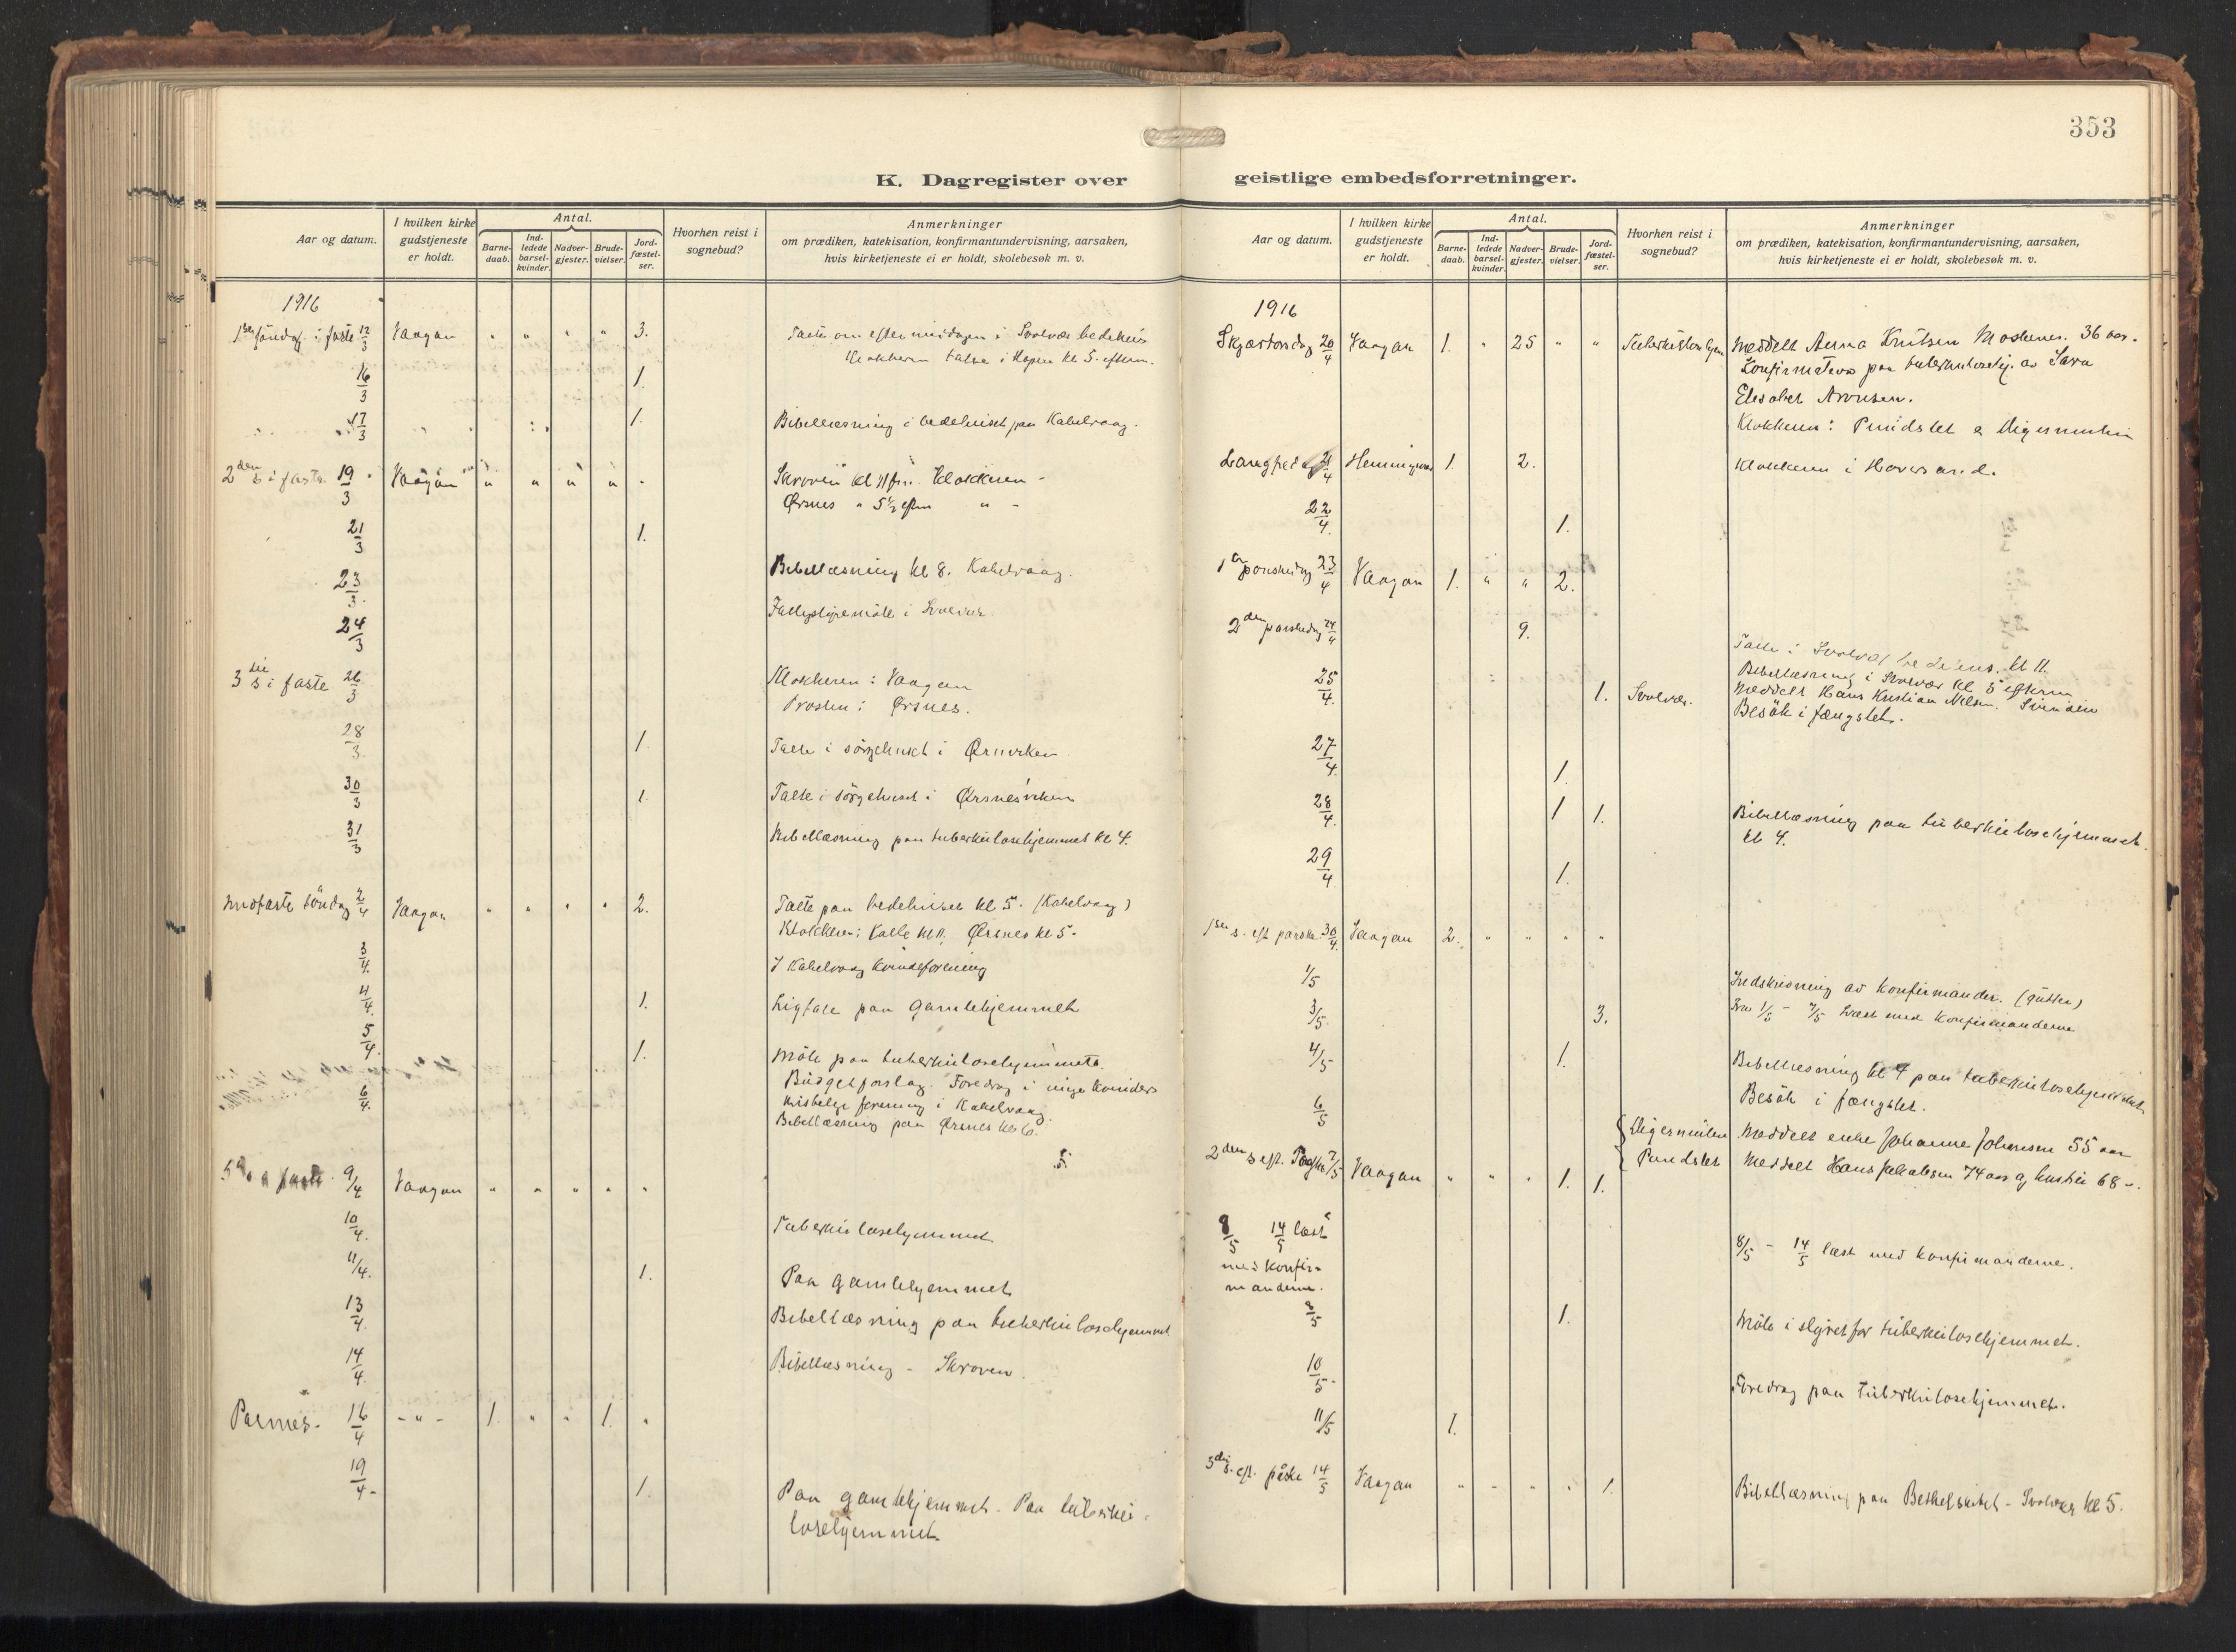 353
K. Dagregister over geistlige embedsforretninger.
Aar og datum.
I hvilken kirke gudstjeneste er holdt.
Antal.
Barne-daab.
Ind-ledede barsel-kvinder.
Nadver-gjester.
Brude-vielser.
Jord-fæstel-ser.
Hvorhen reist i sognebud?
Anmerkninger
om prædiken, katekisation, konfirmantundervisning, aarsaken,
hvis kirketjeneste ei er holdt, skolebesøk m. v.
1916
1ste søndag i faste 12/3 Vaagan " " " " 3. Talte om eftermiddagen i Svolvær bedehus
Klokkeren talte i Hopen kl 5. efterm.
16/3 1.
17/3 1. Bibellæsning i bedehuset paa Kabelvaag.
2den s i faste 19/3 Vaagan " " " " Skroven kl 11 fm. Klokkeren -
Ørsnes " 5 1/2 eftm " -
21/3 1.
23/3 Bibellæsning kl 8. Kabelvaag.
24/3 i Svolvær
3die s i faste 26/3 Klokkeren: Vaagan
Provsten: Ørsnes.
28/3 1. Talte i sörgehuset i
30/3 1. Talte i sörgehuset i Ørsnesviken
31/3 Bibellæsning paa tuberkulosehjemmet kl 4.
Midfaste söndag 2/4 Vaagan " " " " 2. Talte paa bedehuset kl 5. (Kabelvaag)
Klokkeren: Kalle kl 11, Ørsnes kl 5.
3/4. I Kabelvaag kvindeforening
4/4. 1. Ligtale paa Gamlehjemmet
5/4. 1. Möte paa tuberkulosehjemmet.
Budgetforslag. Foredrag i unge kvinders
6/4. kristelige forening i Kabelvaag.
Bibellæsning paa Ørsnes kl 6.
5.
5te s i faste 9/4 Vaagan " " " " "
10/4. Tuberkulosehjemmet
11/4. 1. Paa gamlehjemmet
13/4. Bibellæsning paa tuberkulosehjemmet
14/4. Bibellæsning - Skroven.
Palmes. 16/4 - " - 1. " " 1. "
19/4. 1. Paa gamlehjemmet - Paa tuberku-
losehjemmet
Aar og datum.
I hvilken kirke gudstjeneste er holdt.
Antal.
Barne-daab.
Ind-ledede barsel-kvinder.
Nadver-gjester.
Brude-vielser.
Jord-fæstel-ser.
Hvorhen reist i sognebud?
Anmerkninger
om prædiken, katekisation, konfirmantundervisning, aarsaken,
hvis kirketjeneste ei er holdt, skolebesøk m. v.
1916
Skjærtorsdag 20/4 Vaagan 1. " 25 " " Tuberkulosehjem Meddelt Anna Knutsen Moskenes. 36 aar.
Konfirmation paa tuberkulosehj. av Sara
Elisabet Aronsen.
Klokkeren: Pundslet & Digermulen
Langfredag 21/4 Henningsvær 1. 2. Klokkeren i
22/4. 1.
1ste paaskedag 23/4 Vaagan 1. " " 2.
2den paaskedag 24/4 9. Talte i Svolvær bedehus. kl 11.
Bibellæsning i Svolvær kl 5 efterm
25/4. 1. Svolvær. Meddelt Hans Kristian Nilsen.
Besök i fængslet.
27/4. 1.
28/4. 1 1. Bibellæsning paa tuberkulosehjemmet.
kl 4.
29/4 1.
1ste s. eft paaske. 30/4. Vaagan 2. " " " "
1/5 Indskrivning av konfirmander. (gutter)
3/5. 3. Fra 1/5 - 7/5 læst med konfirmanderne
4/5 1. Bibellæsning kl 4 paa tuberkulosehjemmet
6/5 Besök i fængslet.
Digermulen Meddelt enke Johanne Johansen 55 aar
2den s eft. Paaske 7/5 Vaagan " " " 1. 1. Pundslet Meddelt Hans Jakobsen 74 aar og hustru 68 -.
8/5 14/5 læst 8/5 - 14/5 læst med konfirmanderne.
med konfir-
manderne.
8/5 1. Möte i styret for tuberkulosehjemmet.
10/5. Foredrag paa tuberkulosehjemmet.
11/5 1.
3die s. eft. påske 14/5 Vaagan " " " " 1. Bibellæsning paa - Svolvær kl 5.